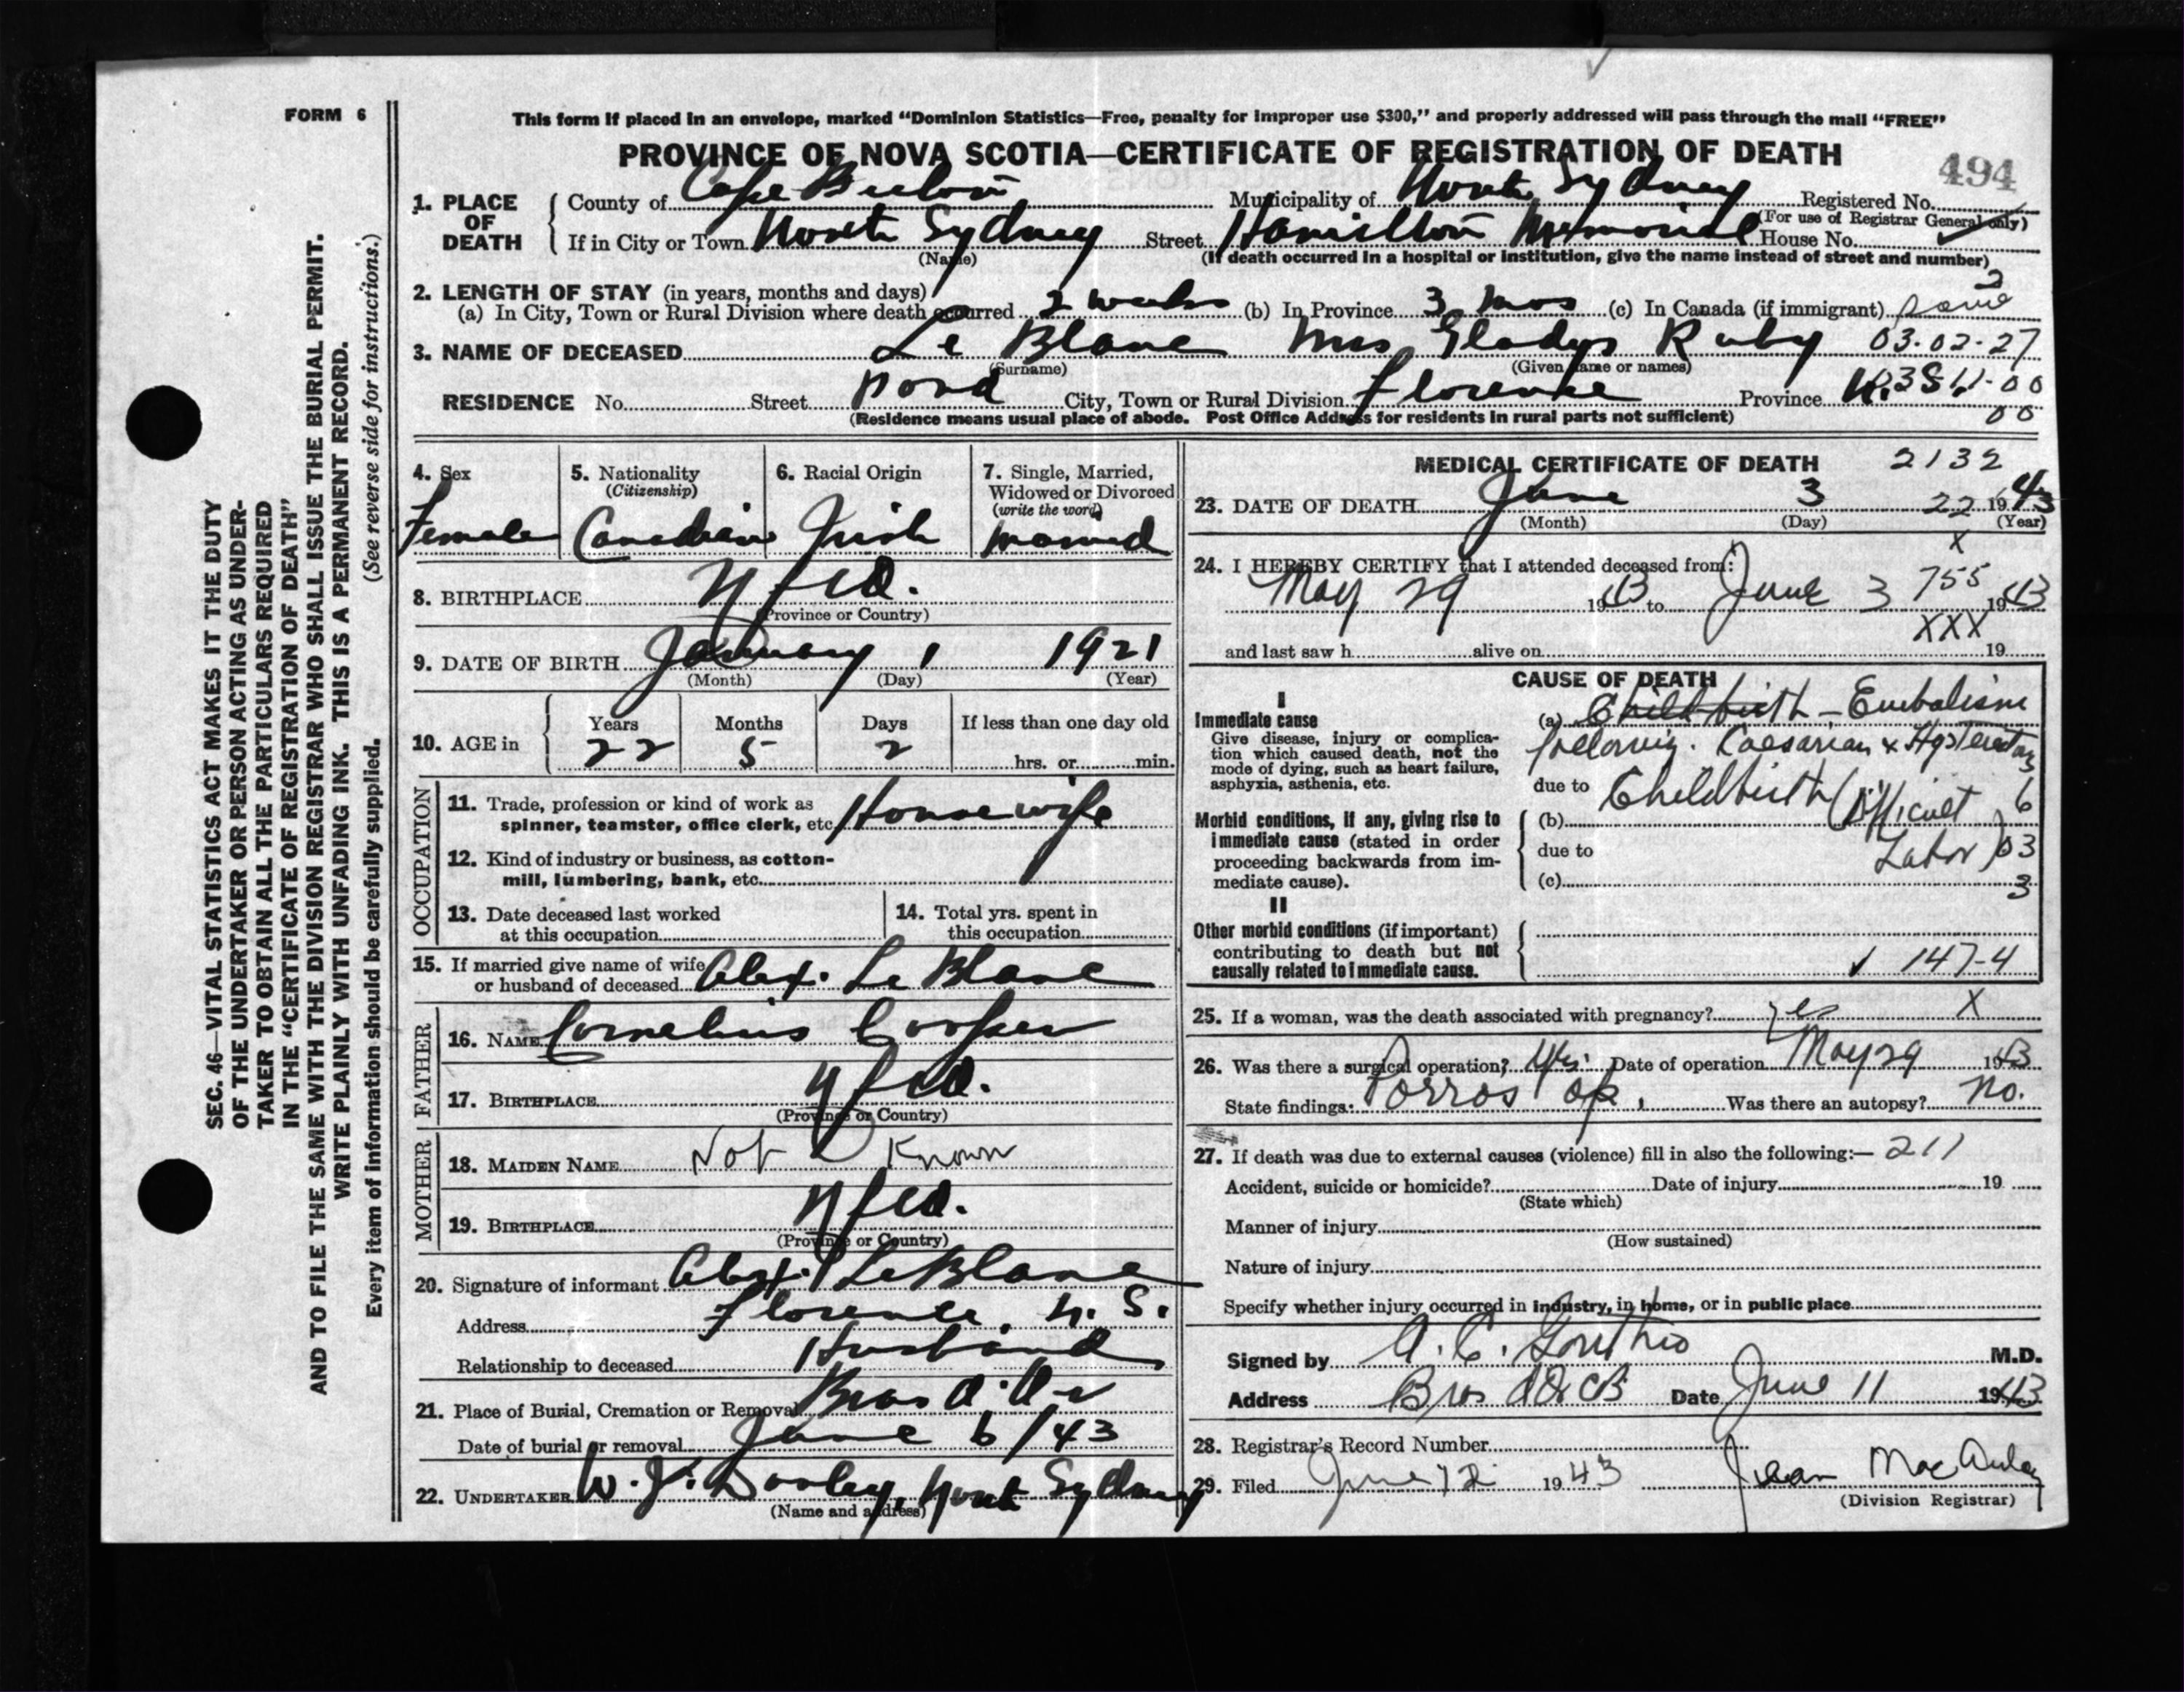 FORM 6
This form if placed in an envelope, marked "Dominion Statistics—Free, penalty for improper use $300," and properly addressed will pass through the mail "FREE"
PROVINCE OF NOVA SCOTIA—CERTIFICATE OF REGISTRATION OF DEATH
494
1. PLACE OF DEATH
County of Cape Breton Municipality of North Sydney Registered No.
(For use of Registrar General only)
If in City or Town North Sydney Street Hamilton Memorial House No.
(Name) (If death occurred in a hospital or institution, give the name instead of street and number)
2. LENGTH OF STAY (in years, months and days) 3
(a) In City, Town or Rural Division where death occurred 2 weeks (b) In Province 3 mos (c) In Canada (if immigrant) same
3. NAME OF DECEASED Le Blanc Mrs Gladys Ruby 03-02-27
(Surname) (Given name or names)
RESIDENCE No. Street Pond City, Town or Rural Division Florence Province
00
(Residence means usual place of abode. Post Office Address for residents in rural parts not sufficient)
SEC. 46—VITAL STATISTICS ACT MAKES IT THE DUTY
OF THE UNDERTAKER OR PERSON ACTING AS UNDER-
TAKER TO OBTAIN ALL THE PARTICULARS REQUIRED
IN THE "CERTIFICATE OF REGISTRATION OF DEATH"
AND TO FILE THE SAME WITH THE DIVISION REGISTRAR WHO SHALL ISSUE THE BURIAL PERMIT.
WRITE PLAINLY WITH UNFADING INK. THIS IS A PERMANENT RECORD.
Every item of information should be carefully supplied. (See reverse side for instructions.)
4. Sex
Female
5. Nationality
(Citizenship)
Canadian
6. Racial Origin
Irish
7. Single, Married,
Widowed or Divorced
(write the word)
Married
8. BIRTHPLACE Nfld.
(Province or Country)
9. DATE OF BIRTH January 1 1921
(Month) (Day) (Year)
10. AGE in
Years Months Days If less than one day old
22 5 2 hrs. or min.
OCCUPATION
11. Trade, profession or kind of work as
spinner, teamster, office clerk, etc. Housewife
12. Kind of industry or business, as cotton-
mill, lumbering, bank, etc.
13. Date deceased last worked
at this occupation
14. Total yrs. spent in
this occupation
15. If married give name of wife
or husband of deceased Alex. Le Blanc
FATHER
16. NAME Cornelius Cooper
17. BIRTHPLACE Nfld.
(Province or Country)
MOTHER
18. MAIDEN NAME Not Known
19. BIRTHPLACE Nfld.
(Province or Country)
20. Signature of informant Alex. LeBlanc
Address Florence, N. S.
Relationship to deceased Husband
21. Place of Burial, Cremation or Removal Bras d'Or
Date of burial or removal June 6/43
22. UNDERTAKER W. J. Dooley, North Sydney
(Name and address)
MEDICAL CERTIFICATE OF DEATH 2132
23. DATE OF DEATH June 3 22 1943
(Month) (Day) (Year)
X
24. I HEREBY CERTIFY that I attended deceased from:
May 29 1943 to June 3 755 1943
XXX
and last saw h alive on 19
CAUSE OF DEATH
I
Immediate cause
Give disease, injury or complica-
tion which caused death, not the
mode of dying, such as heart failure,
asphyxia, asthenia, etc.
(a) Childbirth - Embolism
following. Caesarian & Hysterectomy
3
due to Childbirth (Difficult 6
Labor) 03
3
Morbid conditions, if any, giving rise to
immediate cause (stated in order
proceeding backwards from im-
mediate cause).
(b)
due to
(c)
II
Other morbid conditions (if important)
contributing to death but not
causally related to immediate cause.
147-4
25. If a woman, was the death associated with pregnancy? yes X
26. Was there a surgical operation? Yes. Date of operation May 29 1943
State findings: Porros op. Was there an autopsy? No.
27. If death was due to external causes (violence) fill in also the following:— 211
Accident, suicide or homicide? Date of injury 19
(State which)
Manner of injury
(How sustained)
Nature of injury
Specify whether injury occurred in industry, in home, or in public place
Signed by A. C. M.D.
Address Bras Date June 11 1943
28. Registrar's Record Number
29. Filed June 12 1943 Jean MacAulay
(Division Registrar)